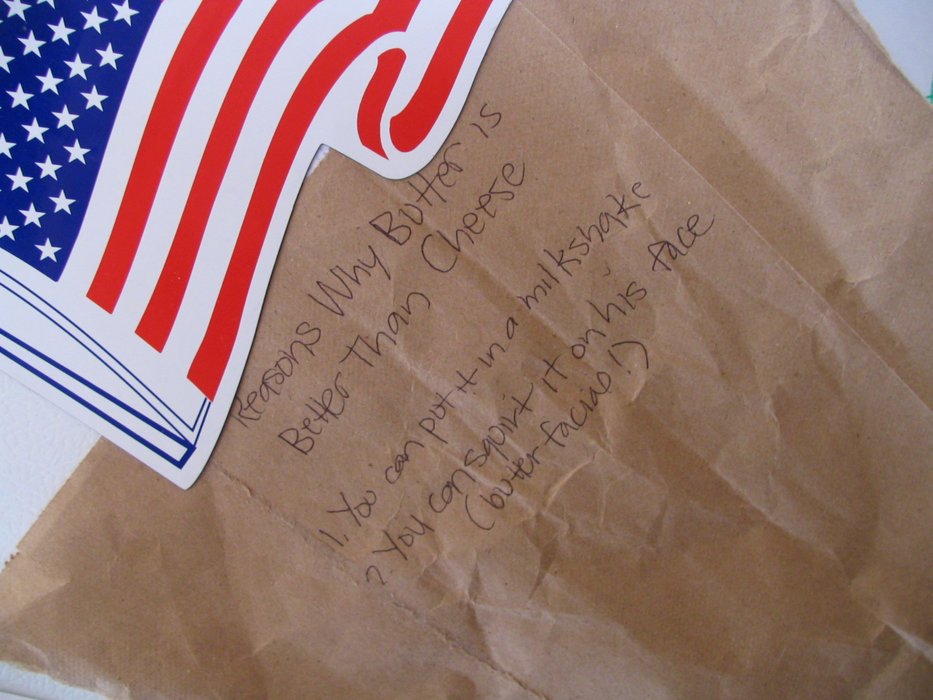 Reasons Why Butter is
Better Than Cheese
1. You can put it in a milkshake
2. You can squirt it on his face
(butter facias!)